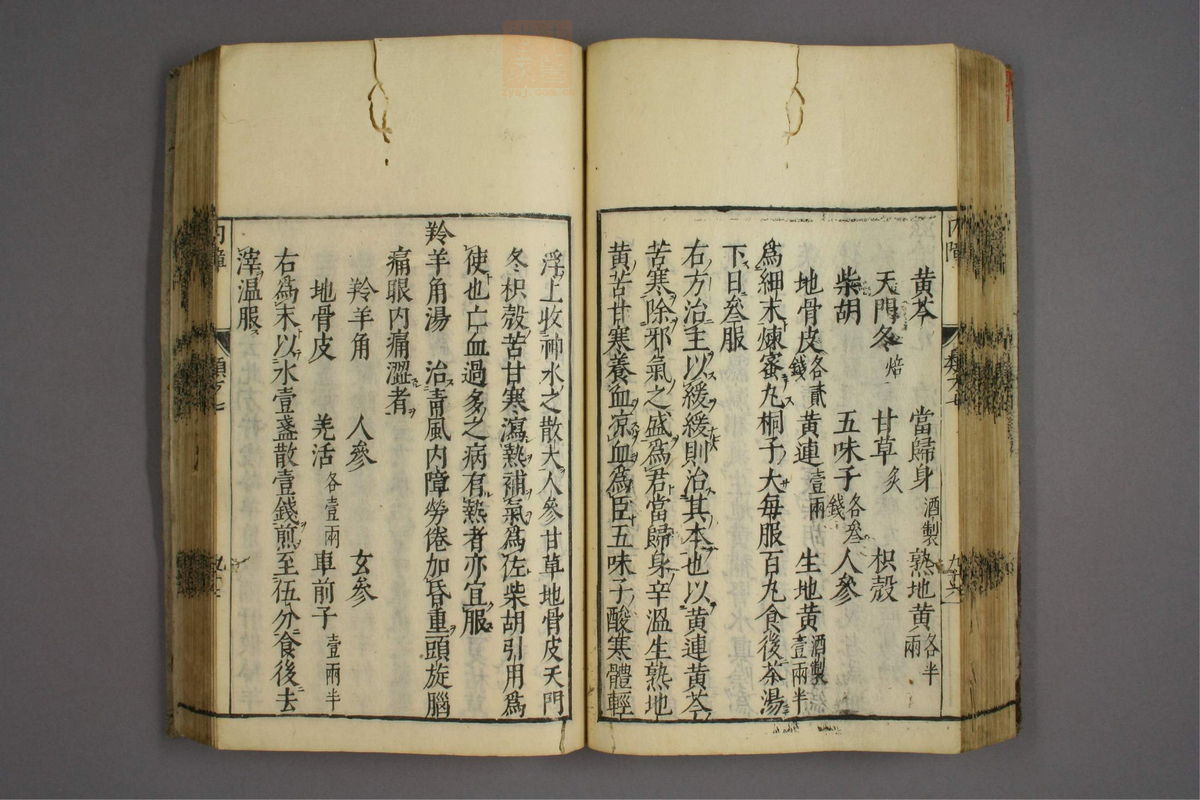 黃芩　當歸身酒製　熟地黃各半兩
天門冬焙　甘草炙　枳殼
柴胡　五味子各叁錢　人參
地骨皮各貳錢　黃連壹兩　生地黃酒製壹兩半
爲細末煉蜜丸桐子大每服百丸食後茶湯
下日叁服
右方治主以緩緩則治其本也以黃連黃芩
苦寒除邪氣之盛爲君當歸身辛溫生熟地
黃苦甘寒養血凉血爲臣五味子酸寒體輕
浮上收神水之散大人參甘草地骨皮天門
冬枳殼苦甘寒瀉熱補氣爲佐柴胡引用爲
使也亡血過多之病有熱者亦宜服
羚羊角湯　治靑風內障勞倦加昏重頭旋腦
痛眼內痛澀者
羚羊角　人參　玄參
地骨皮　羌活各壹兩　車前子壹兩半
右爲末以水壹盞散壹錢煎至伍分食後去
滓溫服
內障
內障